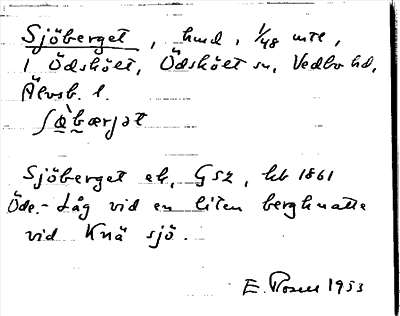 Sjöberget, hmd, 1/48 mtl,
i Ödskölt, Ödskölt sn, Vedbo hd,
Älvsb. l.
ʃø̀bærjət
Sjöberget ek, GSZ, hb 1861
Öde.- Låg vid en liten berghnatte
vid Knä sjö.
E. Rosell 1933